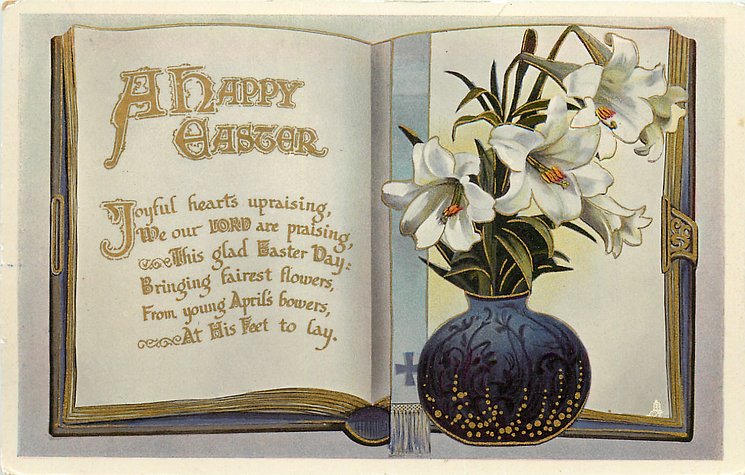 A Happy
Easter
Joyful hearts upraising,
We our LORD are praising,
This glad Easter Day:
Bringing fairest flowers,
From young April's bowers,
At His Feet to lay.